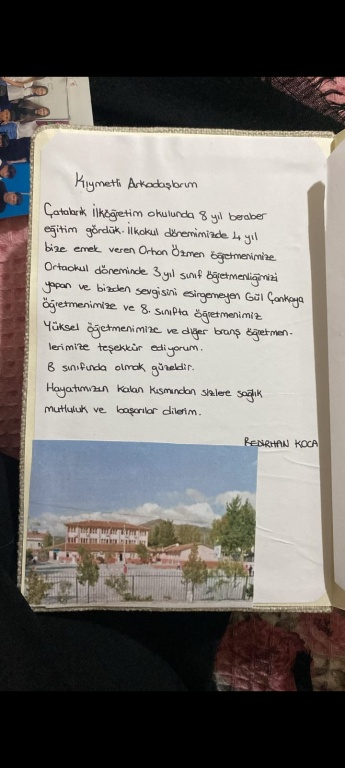 Kıymetli Arkadaşlarım
Çatalarık İlköğretim okulunda 8 yıl beraber
eğitim gördük. İlkokul dönemimizde 4 yıl
bize emek veren Orhan Özmen öğretmenimize
Ortaokul döneminde 3 yıl sınıf öğretmenliğimizi
yapan ve bizden sevgisini esirgemeyen Gül Çankaya
öğretmenimize ve 8. sınıfta öğretmenimiz
Yüksel öğretmenimize ve diğer branş öğretmen-
lerimize teşekkür ediyorum.
8 sınıfında olmak güzeldir.
Hayatımızın kalan kısmından sizlere sağlık
mutluluk ve başarılar dilerim.
BEDİRHAN KOCA